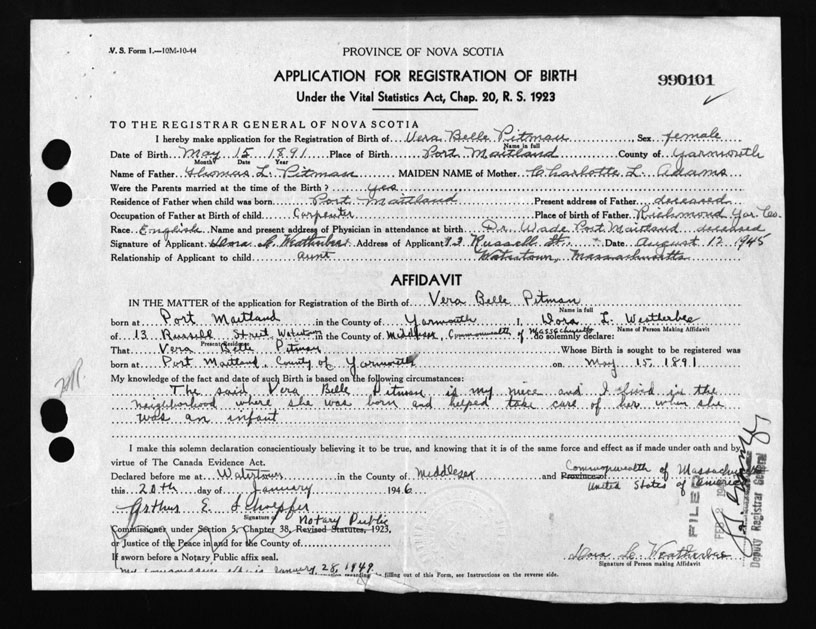 N. S. Form 1.—10M-10-44
PROVINCE OF NOVA SCOTIA
APPLICATION FOR REGISTRATION OF BIRTH
990101
Under the Vital Statistics Act, Chap. 20, R. S. 1923
TO THE REGISTRAR GENERAL OF NOVA SCOTIA
I hereby make application for the Registration of Birth of Vera Belle Pitman Sex female
Name in full
Date of Birth May 15 1891 Place of Birth Port Maitland County of Yarmouth
Month Date Year
Name of Father Thomas L. Pitman MAIDEN NAME of Mother Charlotte L. Adams
Were the Parents married at the time of the Birth? yes
Residence of Father when child was born Port Maitland Present address of Father deceased
Occupation of Father at Birth of child Carpenter Place of birth of Father Richmond Yar. Co.
Race English Name and present address of Physician in attendance at birth Dr. Wade Port Maitland deceased
Signature of Applicant Weatherbee Address of Applicant 13 Russell St. Date August 12 1945
Relationship of Applicant to child aunt Watertown, Massachusetts
AFFIDAVIT
IN THE MATTER of the application for Registration of the Birth of Vera Belle Pitman
Name in full
born at Port Maitland in the County of Yarmouth I, Dora L. Weatherbee
Name of Person Making Affidavit
of 13 Russell Street Watertown in the County of Middlesex, Commonwealth of Massachusetts do solemnly declare:
Present Residence
That Vera Belle Pitman Whose Birth is sought to be registered was
born at Port Maitland, County of Yarmouth on May 15 1891
My knowledge of the fact and date of such Birth is based on the following circumstances:
The said Vera Belle Pitman is my niece and I lived in the
neighborhood where she was born and helped take care of her when she
was an infant
I make this solemn declaration conscientiously believing it to be true, and knowing that it is of the same force and effect as if made under oath and by
virtue of The Canada Evidence Act.
Declared before me at Watertown in the County of Middlesex and Province of Commonwealth of Massachusetts
this 20th day of January 1946 United States of America
Arthur E.
Signature of Notary Public
Commissioner under Section 5, Chapter 38, Revised Statutes, 1923,
or Justice of the Peace in and for the County of
If sworn before a Notary Public affix seal.
Dora L. Weatherbee
Signature of Person making Affidavit
My commission expires January 28, 1949
filling out of this Form, see Instructions on the reverse side.
FILED
FEB 2
Deputy Registrar General